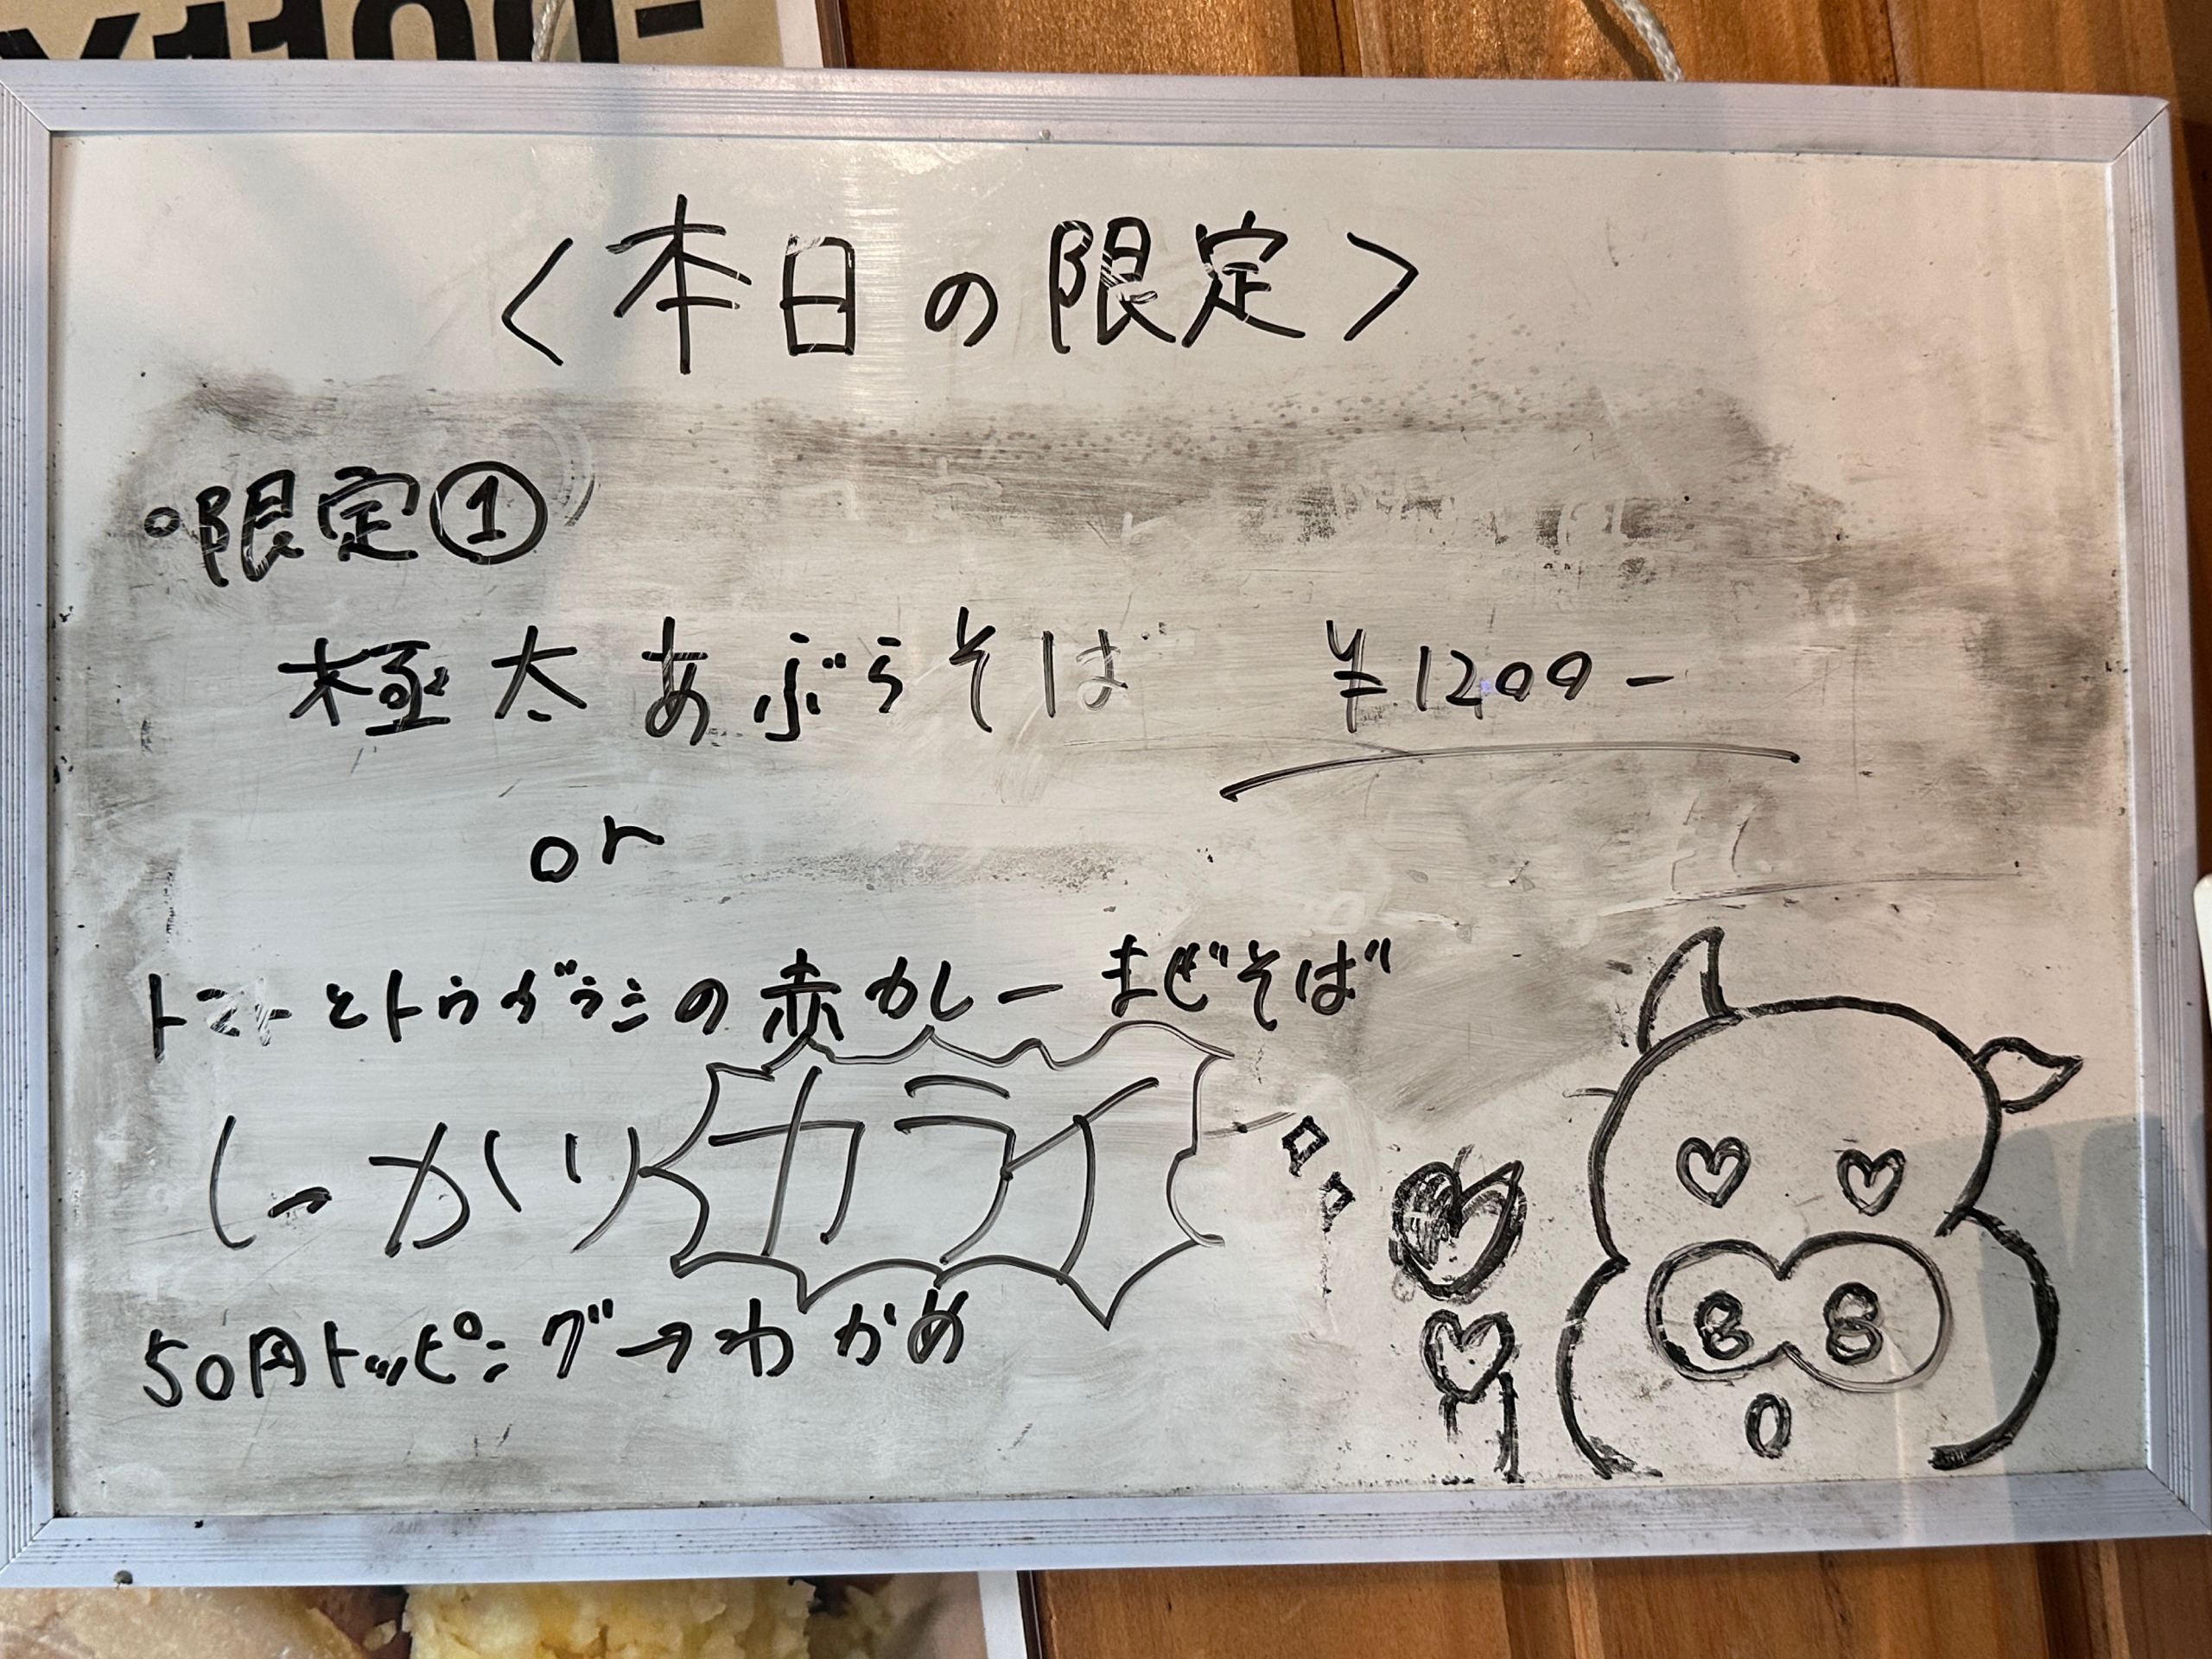 ¥1100-
<本日の限定>
○限定①
極太あぶらそば ¥1200-
or
トマトとトウガラシの赤カレーまぜそば
しーかり カライ
50円トッピング→わかめ